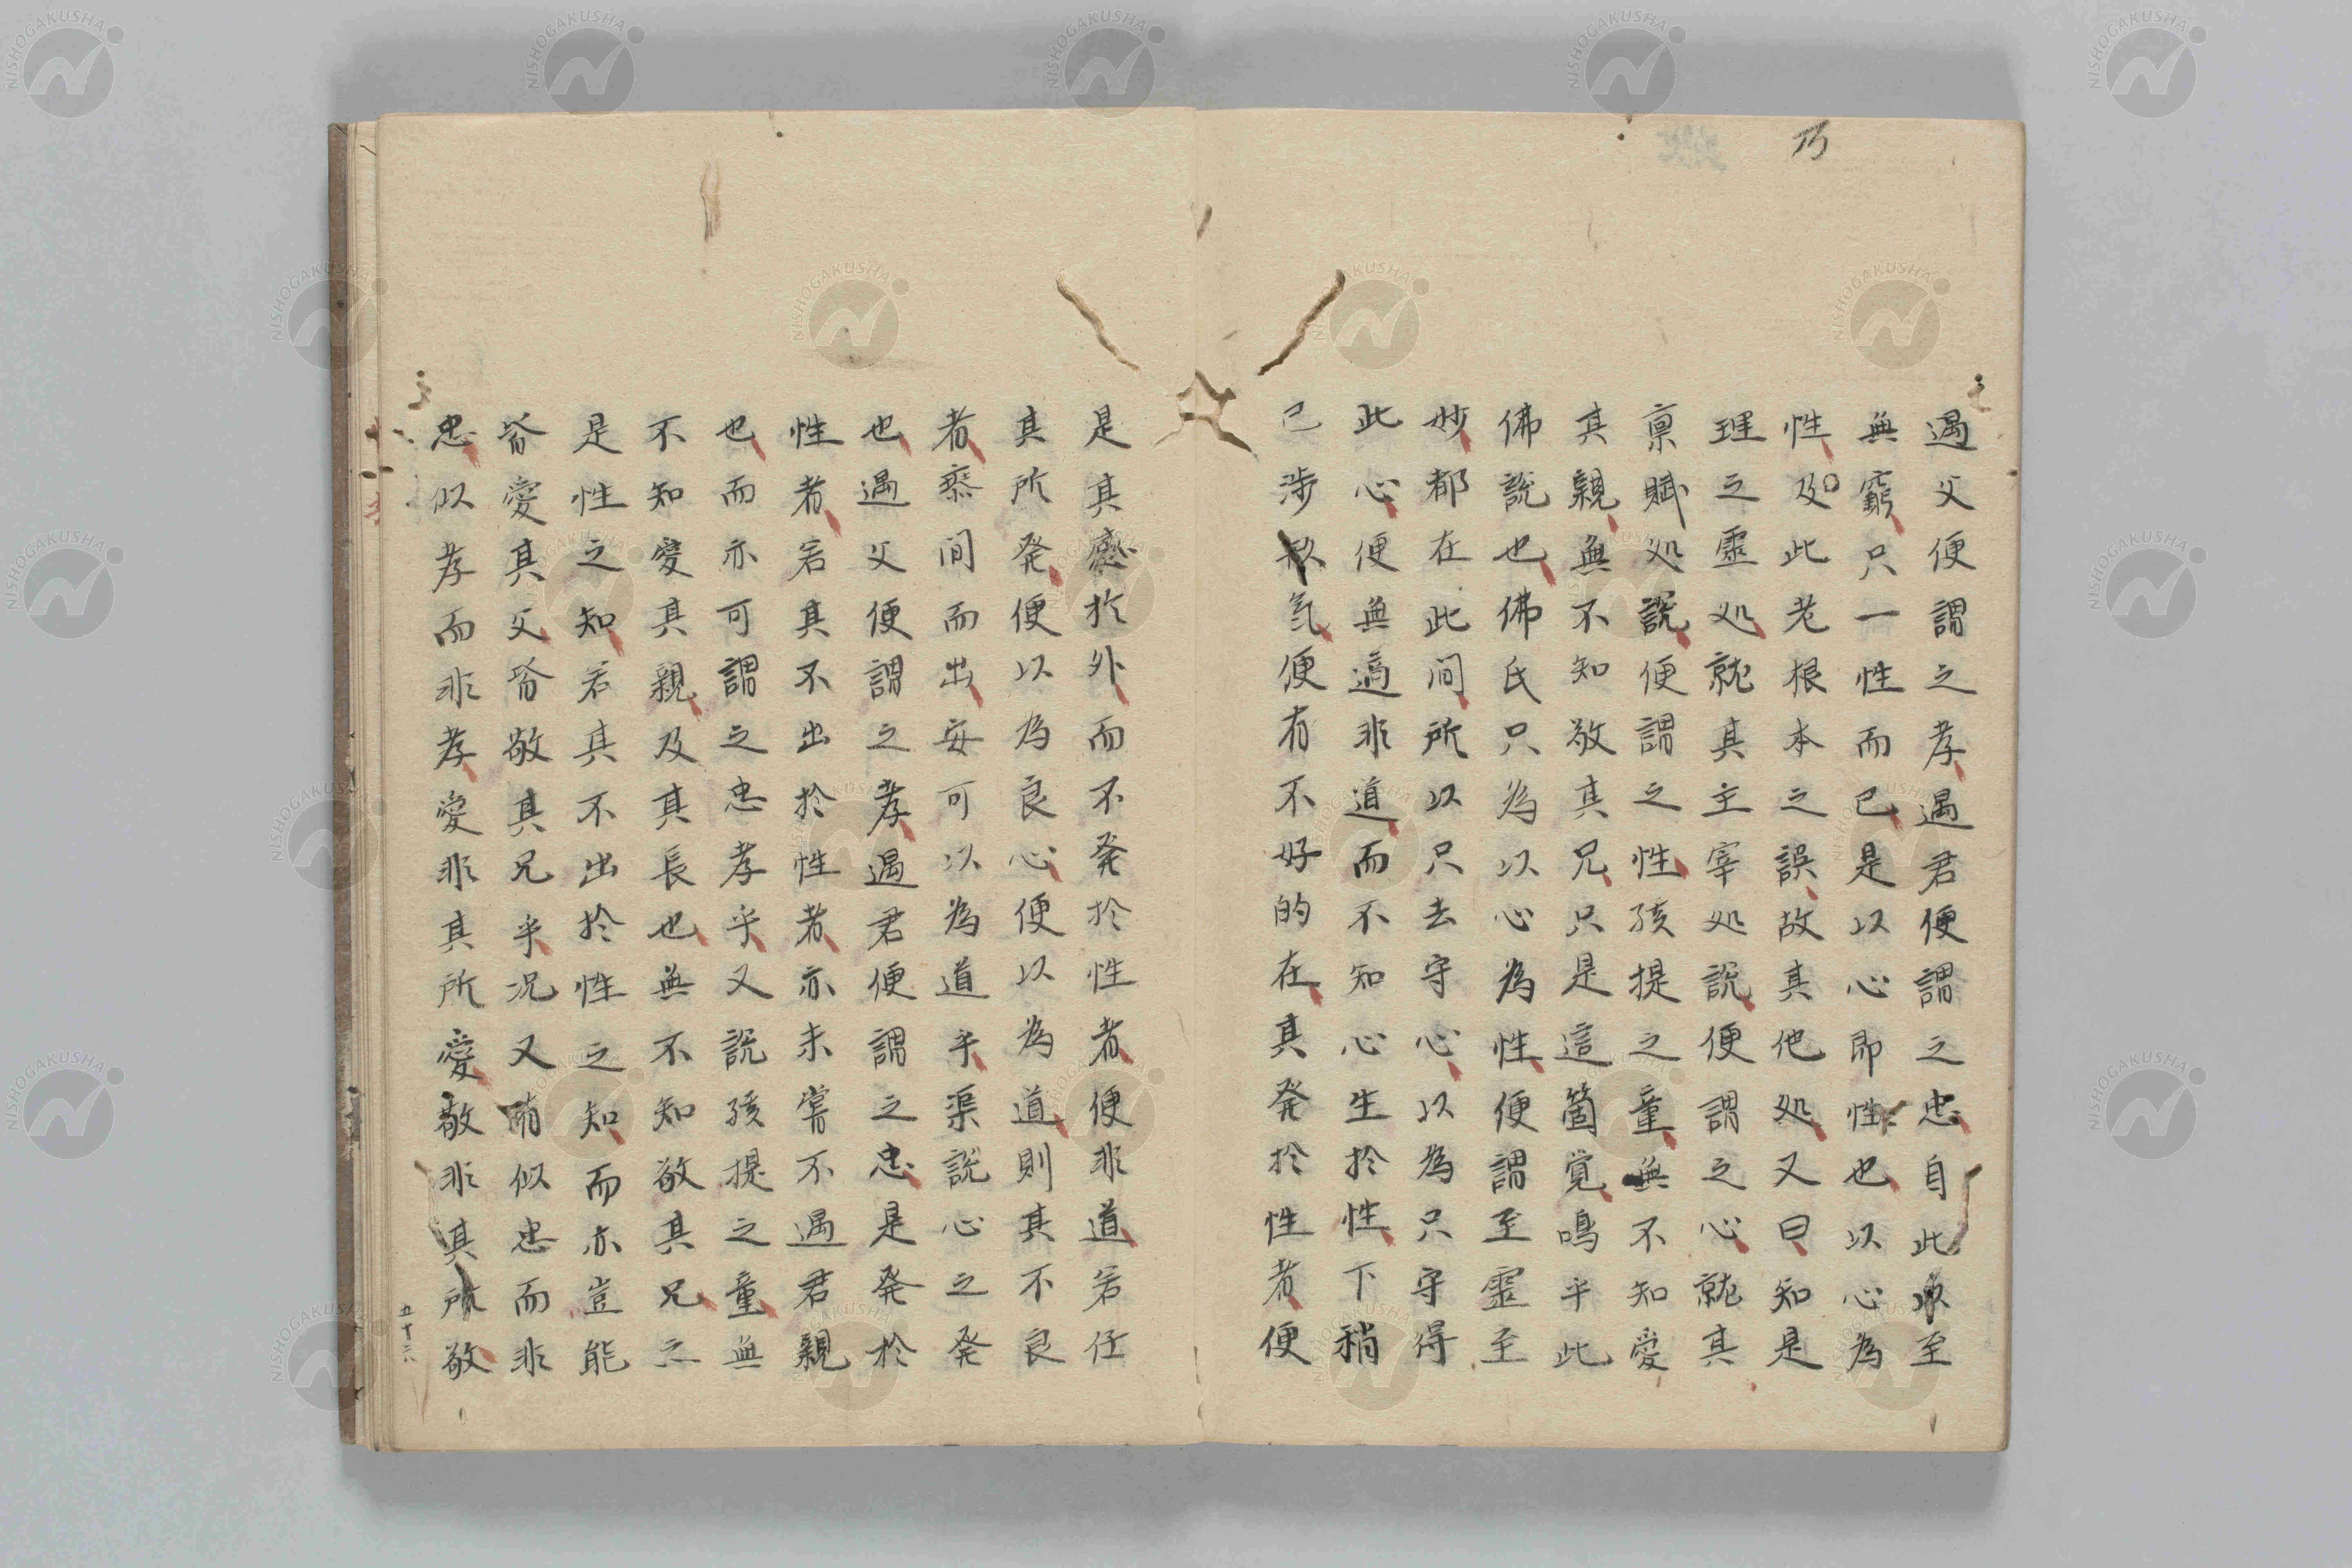 乃
遇父便謂之孝遇君便謂之忠自此以至
無窮只一性而已是以心即性也以心為
性及此老根本之誤故其他処又曰知是
理之霊処就其主宰処説便謂之心就其
禀賦処説便謂之性孩提之童無不知愛
其親無不知敬其兄只是這箇覚鳴乎此
佛説也佛氏只為以心為性便謂至霊至
妙都在此間所以只去守心以為只守得
此心便無適非道而不知心生於性下稍
已渉形気便有不好的在其発於性者便
是其応於外而不発於性者便非道若任
其所発便以為良心便以為道則其不良
者乘間而出安可以為道乎渠説心之発
也遇父便謂之孝遇君便謂之忠是発於
性者若其不出於性者亦未嘗不遇君親
也而亦可謂之忠孝乎又説孩提之童無
不知愛其親及其長也無不知敬其兄亦
是性之知若其不出於性之知而亦豈能
皆愛其父皆敬其兄乎况又有似忠而非
忠似孝而非孝愛非其所愛敬非其所敬
五十六
NISHOGAKUSHA